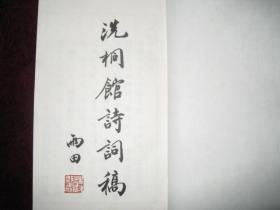 洗桐館詩詞稿
雨田